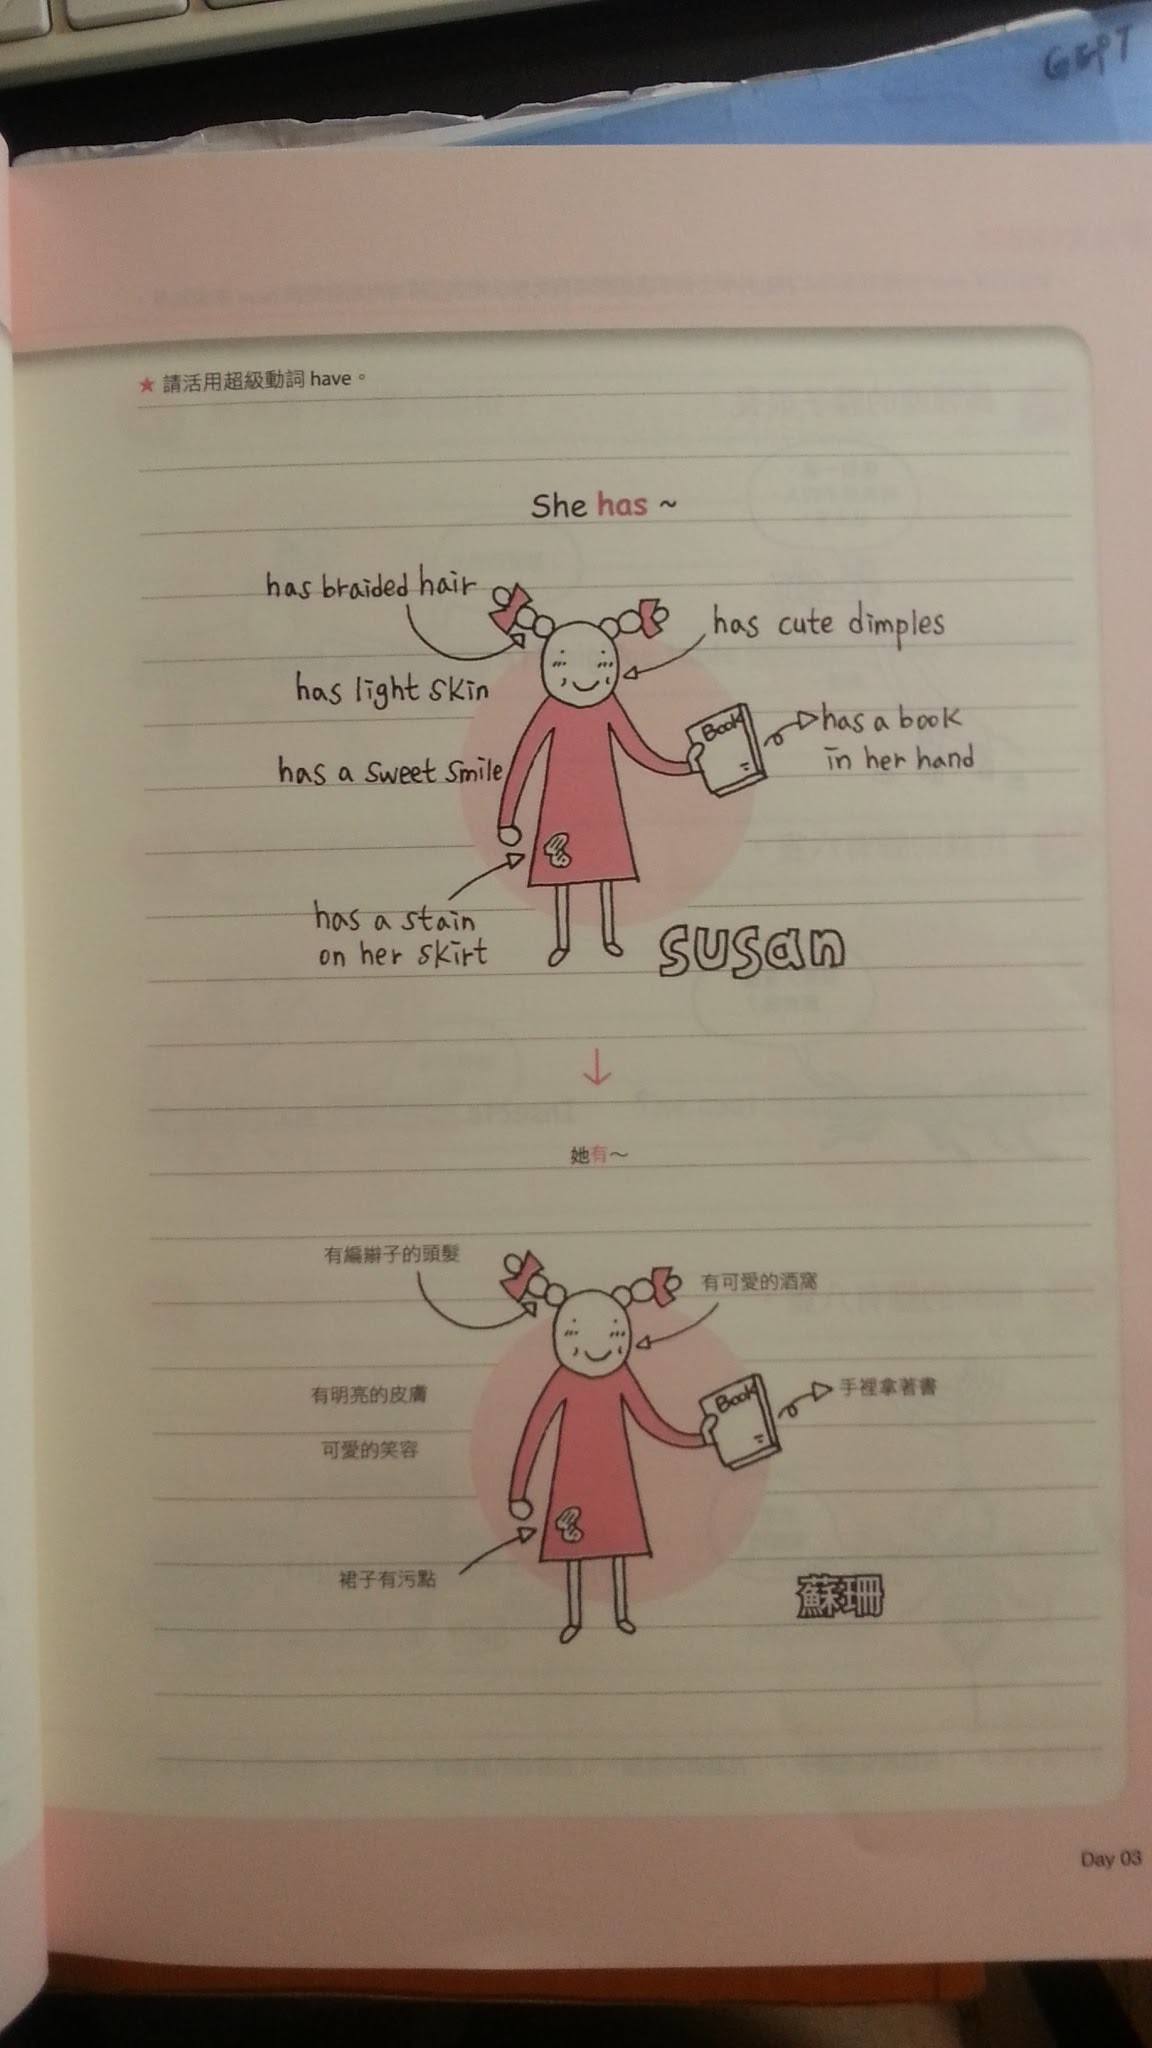 GEPT
★ 請活用超級動詞 have。
She has ~
has braided hair
has cute dimples
has light skin
Book
has a book
in her hand
has a sweet smile
has a stain
on her skirt
susan
↓
她有～
有編辮子的頭髮
有可愛的酒窩
有明亮的皮膚
Book
手裡拿著書
可愛的笑容
裙子有污點
蘇珊
Day 03